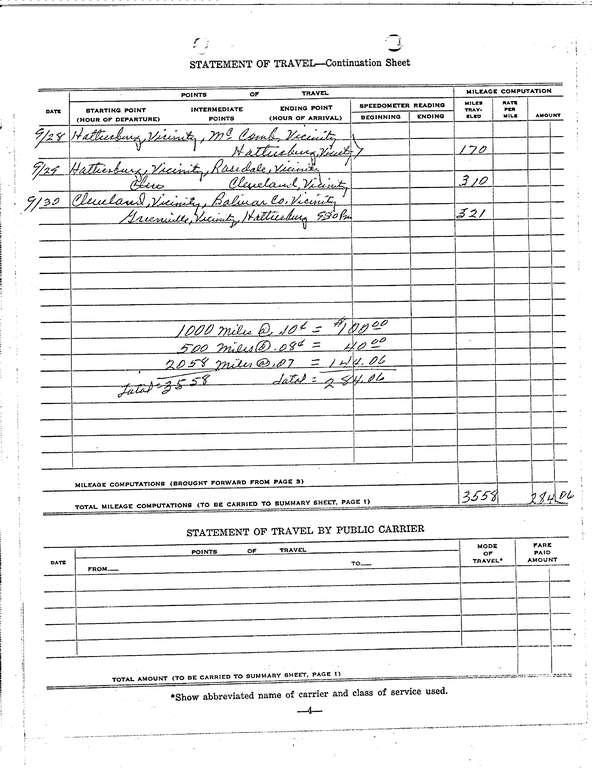 STATEMENT OF TRAVEL—Continuation Sheet
POINTS OF TRAVEL
MILEAGE COMPUTATION
DATE
STARTING POINT (HOUR OF DEPARTURE)
INTERMEDIATE POINTS
ENDING POINT (HOUR OF ARRIVAL)
SPEEDOMETER READING
BEGINNING
ENDING
MILES TRAV- ELED
RATE PER MILE
AMOUNT
9/28 Hattiesburg, Vicinity, Mc Comb, Vicinity
Hattiesburg, 170
9/29 Hattiesburg, Vicinity, Rosedale, Vicinity
Cleveland, Vicinity 310
9/30 Cleveland, Vicinity, Bolivar Co. Vicinity
Greenville, Vicinity, Hattiesburg 930 Pm 321
1000 Miles @ .10¢ = $100.00
500 Miles @ .08¢ = 40.00
2058 Miles @ .07 = 144.06
Total = 3558 Total = 284.06
MILEAGE COMPUTATIONS (BROUGHT FORWARD FROM PAGE 3)
TOTAL MILEAGE COMPUTATIONS (TO BE CARRIED TO SUMMARY SHEET, PAGE 1) 3558 284.06
STATEMENT OF TRAVEL BY PUBLIC CARRIER
DATE
POINTS OF TRAVEL
FROM—
TO—
MODE OF TRAVEL*
FARE PAID AMOUNT
TOTAL AMOUNT (TO BE CARRIED TO SUMMARY SHEET, PAGE 1)
*Show abbreviated name of carrier and class of service used.
—4—